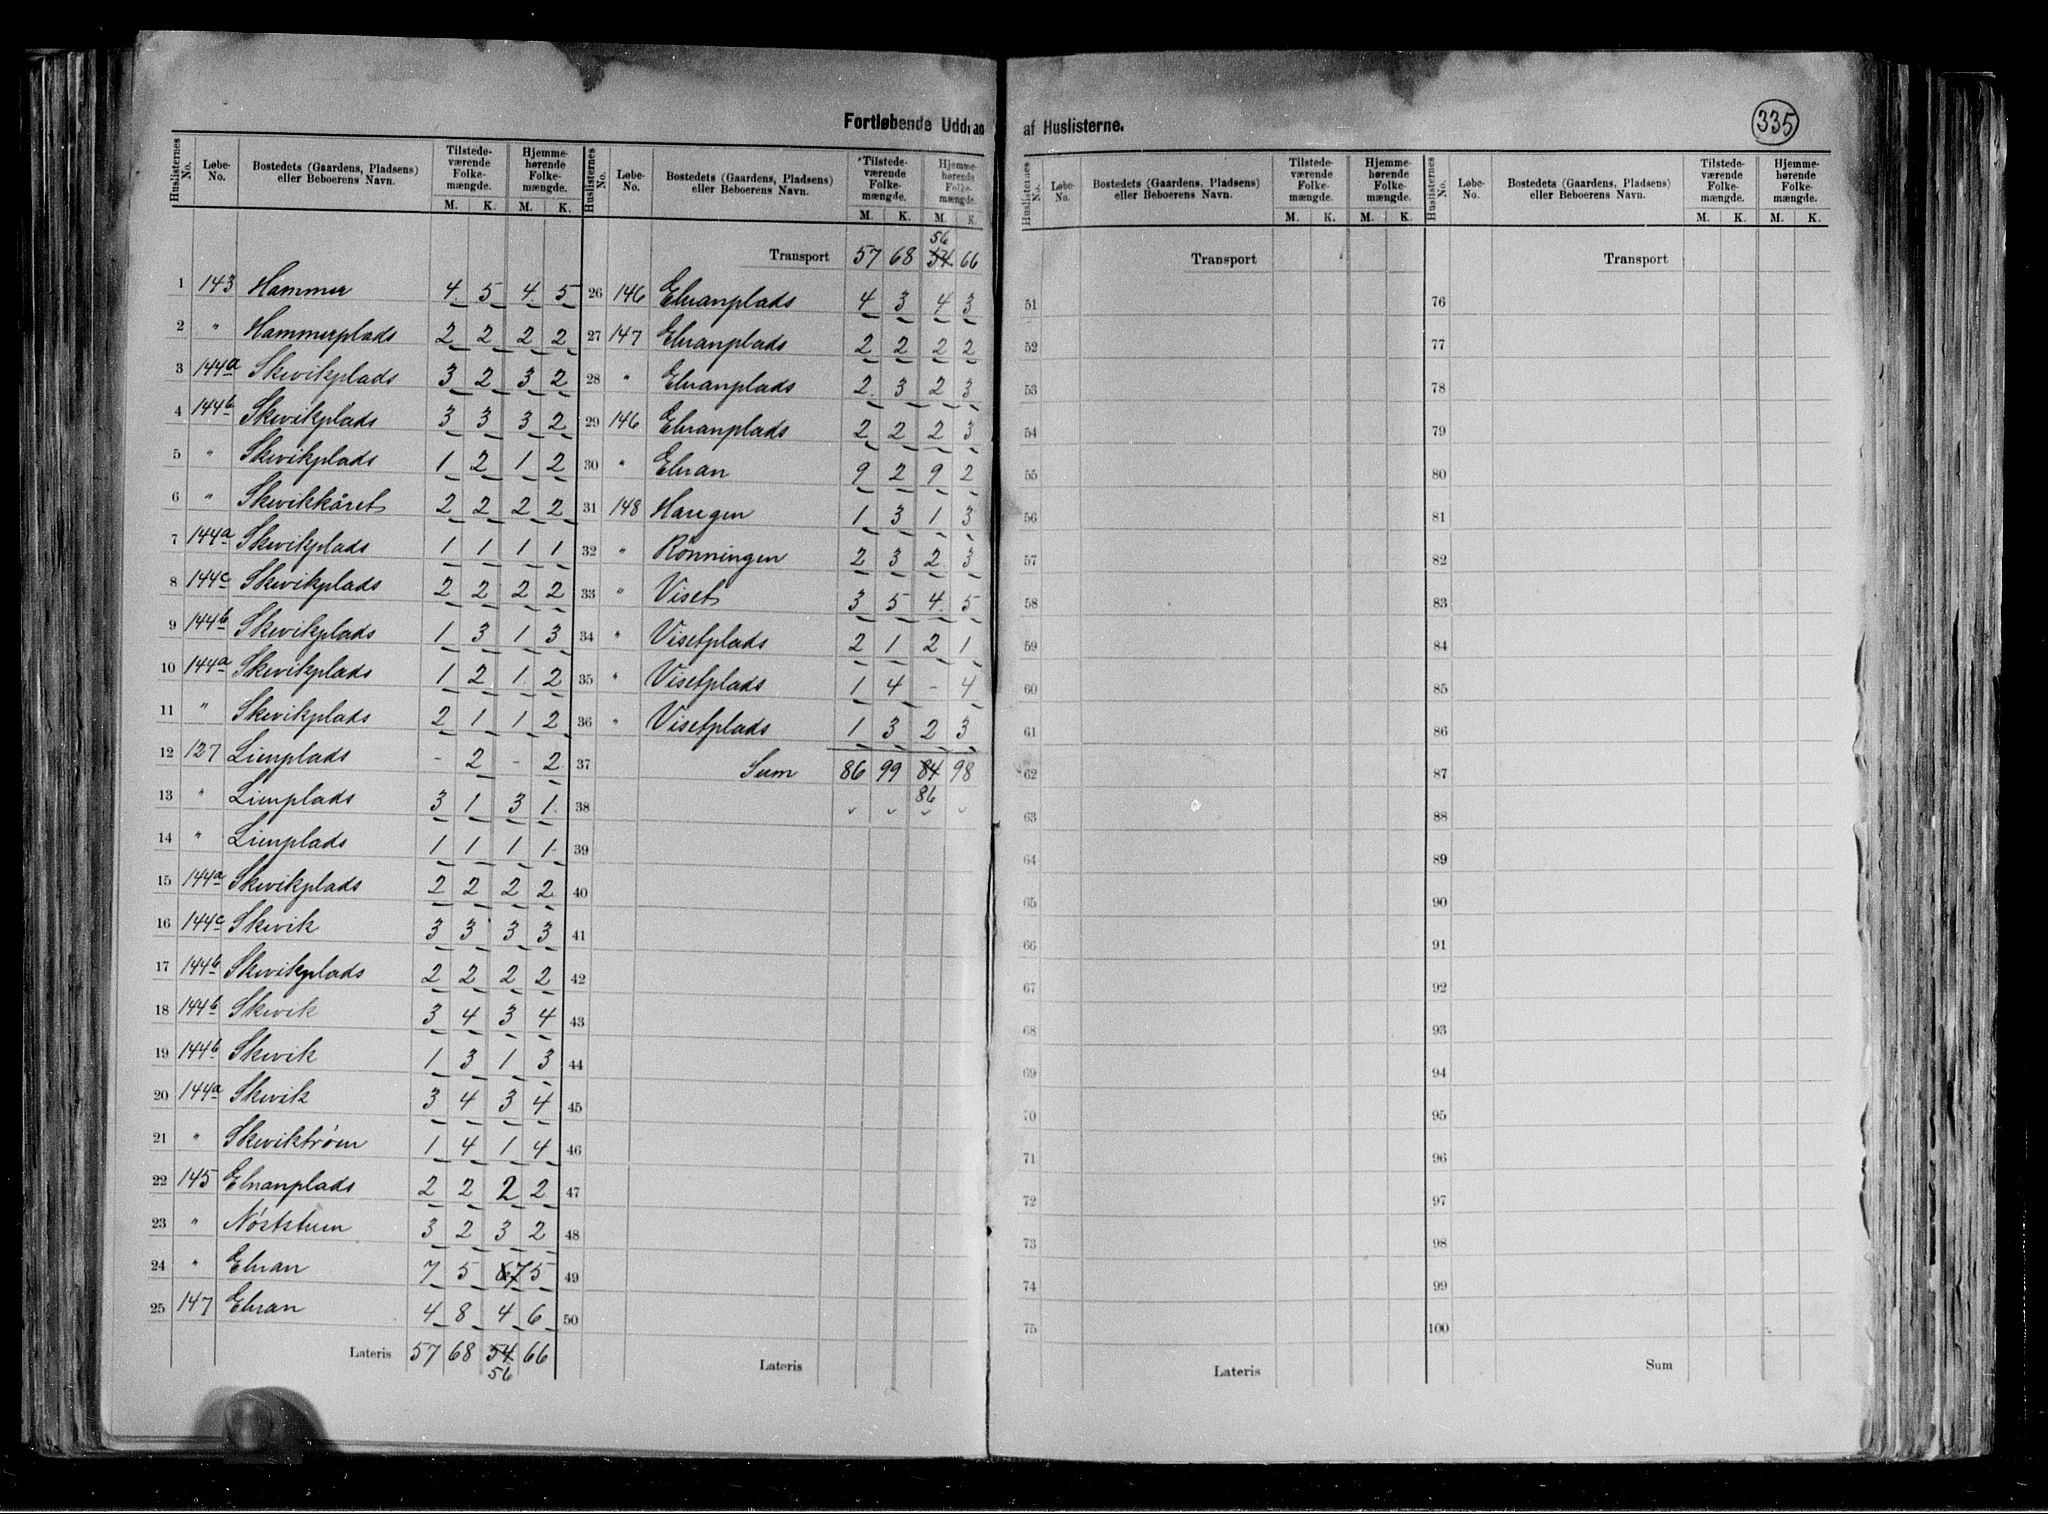 Fortløbende Uddrag af Huslisterne.
335
Huslisternes No. | Løbe-No. | Bostedets (Gaardens, Pladsens) eller Beboerens Navn. | Tilstedeværende Folkemængde. M. K. | Hjemmehørende Folkemængde. M. K.
1 143 Hammer 4 5 4 5
2 " Hammerplads 2 2 2 2
3 144a Skevikplads 3 2 3 2
4 144b Skevikplads 3 3 3 2
5 " Skevikplads 1 2 1 2
6 " Skevikkåret 2 2 2 2
7 144a Skevikplads 1 1 1 1
8 144c Skevikplads 2 2 2 2
9 144b Skevikplads 1 3 1 3
10 144a Skevikplads 1 2 1 2
11 " Skevikplads 2 1 1 2
12 127 Lienplads - 2 - 2
13 " Lienplads 3 1 3 1
14 " Lienplads 1 1 1 1
15 144a Skevikplads 2 2 2 2
16 144c Skevik 3 3 3 3
17 144b Skevikplads 2 2 2 2
18 144b Skevik 3 4 3 4
19 144b Skevik 1 3 1 3
20 144a Skevik 3 4 3 4
21 " Skeviktrøen 1 4 1 4
22 145 Elvranplads 2 2 2 2
23 " Nöststuen 3 2 3 2
24 " Elvran 7 5 6 7 5
25 147 Elvran 4 8 4 6
Lateris 57 68 54 66
56
Huslisternes No. | Løbe-No. | Bostedets (Gaardens, Pladsens) eller Beboerens Navn. | Tilstedeværende Folkemængde. M. K. | Hjemmehørende Folkemængde. M. K.
56
Transport 57 68 54 66
26 146 Elvranplads 4 3 4 3
27 147 Elvranplads 2 2 2 2
28 " Elvranplads 2 3 2 3
29 146 Elvranplads 2 2 2 3
30 " Elvran 9 2 9 2
31 148 Haugen 1 3 1 3
32 " Rönningen 2 3 2 3
33 " Viset 3 5 4 5
34 " Visetplads 2 1 2 1
35 " Visetplads 1 4 - 4
36 " Visetplads 1 3 2 3
37 Sum 86 99 84 98
38 86
39
40
41
42
43
44
45
46
47
48
49
50
Lateris
Huslisternes No. | Løbe-No. | Bostedets (Gaardens, Pladsens) eller Beboerens Navn. | Tilstedeværende Folkemængde. M. K. | Hjemmehørende Folkemængde. M. K.
Transport
51
52
53
54
55
56
57
58
59
60
61
62
63
64
65
66
67
68
69
70
71
72
73
74
75
Lateris
Huslisternes No. | Løbe-No. | Bostedets (Gaardens, Pladsens) eller Beboerens Navn. | Tilstedeværende Folkemængde. M. K. | Hjemmehørende Folkemængde. M. K.
Transport
76
77
78
79
80
81
82
83
84
85
86
87
88
89
90
91
92
93
94
95
96
97
98
99
100
Sum